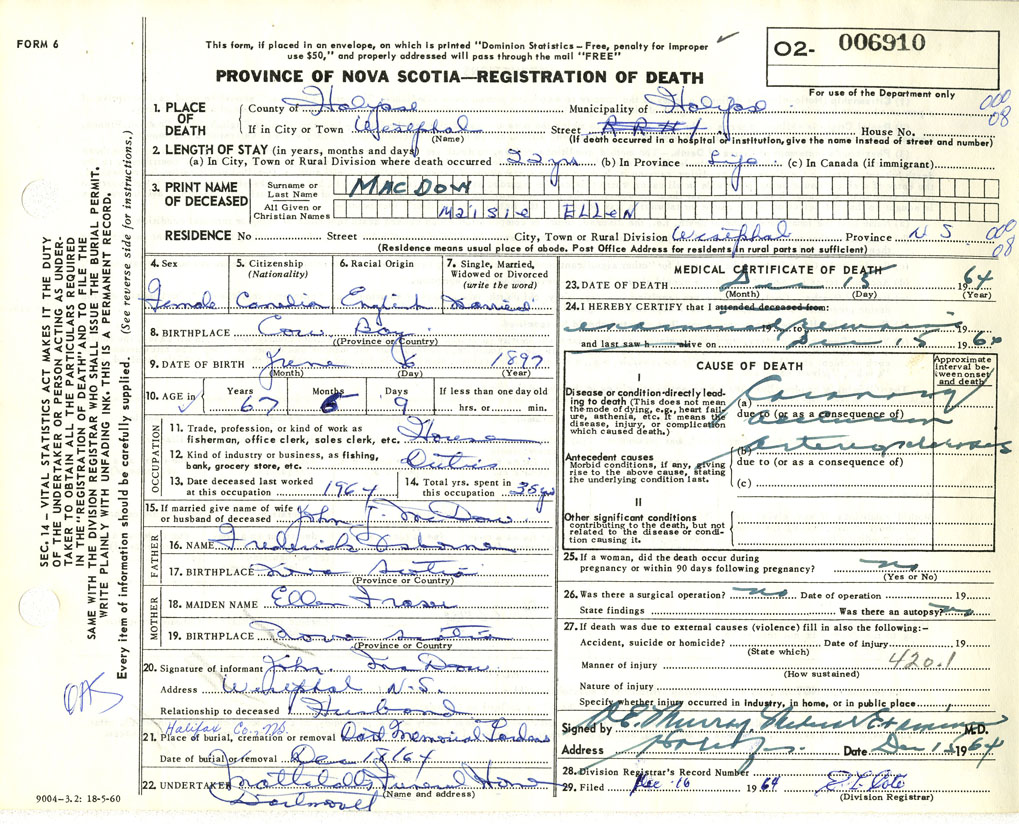 FORM 6
This form, if placed in an envelope, on which is printed "Dominion Statistics – Free, penalty for improper
use $50," and properly addressed will pass through the mail "FREE"
PROVINCE OF NOVA SCOTIA—REGISTRATION OF DEATH
02- 006910
For use of the Department only
1. PLACE OF DEATH
County of Halifax Municipality of Halifax
000
08
If in City or Town Westphal Street R R # 1 House No.
(Name) (If death occurred in a hospital or institution, give the name instead of street and number)
2. LENGTH OF STAY (in years, months and days)
(a) In City, Town or Rural Division where death occurred 22 yrs (b) In Province Life (c) In Canada (if immigrant)
3. PRINT NAME OF DECEASED
Surname or Last Name MAC DOW
All Given or Christian Names MAISIE ELLEN
RESIDENCE No Street City, Town or Rural Division Westphal Province N S
000
08
(Residence means usual place of abode. Post Office Address for residents in rural parts not sufficient)
4. Sex
Female
5. Citizenship
(Nationality)
Canadian
6. Racial Origin
English
7. Single, Married,
Widowed or Divorced
(write the word)
Married
8. BIRTHPLACE Cow Bay
(Province or Country)
9. DATE OF BIRTH June 6 1897
(Month) (Day) (Year)
10. AGE in
Years Months Days If less than one day old
67 6 9 hrs. or min.
OCCUPATION
11. Trade, profession, or kind of work as
fisherman, office clerk, sales clerk, etc. House
12. Kind of industry or business, as fishing,
bank, grocery store, etc. Duties
13. Date deceased last worked
at this occupation 1964
14. Total yrs. spent in
this occupation 35 yrs
15. If married give name of wife
or husband of deceased John J. McDow
FATHER
16. NAME Frederick Osborne
17. BIRTHPLACE Nova Scotia
(Province or Country)
MOTHER
18. MAIDEN NAME Ellen Fraser
19. BIRTHPLACE Nova Scotia
(Province or Country)
20. Signature of informant John MacDow
Address Westphal N.S.
Relationship to deceased Husband
Halifax Co., N.S.
21. Place of burial, cremation or removal Dart Memorial Gardens
Date of burial or removal Dec 18/64
22. UNDERTAKER Mattatall Funeral Home
(Name and address)
Dartmouth
9004-3.2: 18-5-60
MEDICAL CERTIFICATE OF DEATH
23. DATE OF DEATH Dec 15 1964
(Month) (Day) (Year)
24. I HEREBY CERTIFY that I attended deceased from:
examined remains 19 to 19
and last saw h alive on Dec 15 1964
CAUSE OF DEATH
Approximate interval between onset and death
I
Disease or condition directly leading to death (This does not mean the mode of dying, e.g., heart failure, asthenia, etc. It means the disease, injury, or complication which caused death.)
(a) Coronary
due to (or as a consequence of)
occlusion
Antecedent causes
Morbid conditions, if any, giving rise to the above cause, stating the underlying condition last.
(b) Arteriosclerosis
due to (or as a consequence of)
(c)
II
Other significant conditions
contributing to the death, but not related to the disease or condition causing it.
25. If a woman, did the death occur during
pregnancy or within 90 days following pregnancy? no
(Yes or No)
26. Was there a surgical operation? no Date of operation 19
State findings Was there an autopsy? no
27. If death was due to external causes (violence) fill in also the following:–
Accident, suicide or homicide? Date of injury 19
(State which)
Manner of injury 420.1
(How sustained)
Nature of injury
Specify whether injury occurred in industry, in home, or in public place
Signed by R.E. Murray Medical Examiner M.D.
Address Halifax Date Dec 15 1964
28. Division Registrar's Record Number
29. Filed Dec 16 1964
(Division Registrar)
SEC. 14 – VITAL STATISTICS ACT MAKES IT THE DUTY
OF THE UNDERTAKER OR PERSON ACTING AS UNDER-
TAKER TO OBTAIN ALL THE PARTICULARS REQUIRED
IN THE "REGISTRATION OF DEATH" AND TO FILE THE
SAME WITH THE DIVISION REGISTRAR WHO SHALL ISSUE THE BURIAL PERMIT.
WRITE PLAINLY WITH UNFADING INK. THIS IS A PERMANENT RECORD.
Every item of information should be carefully supplied. (See reverse side for instructions.)
OAS